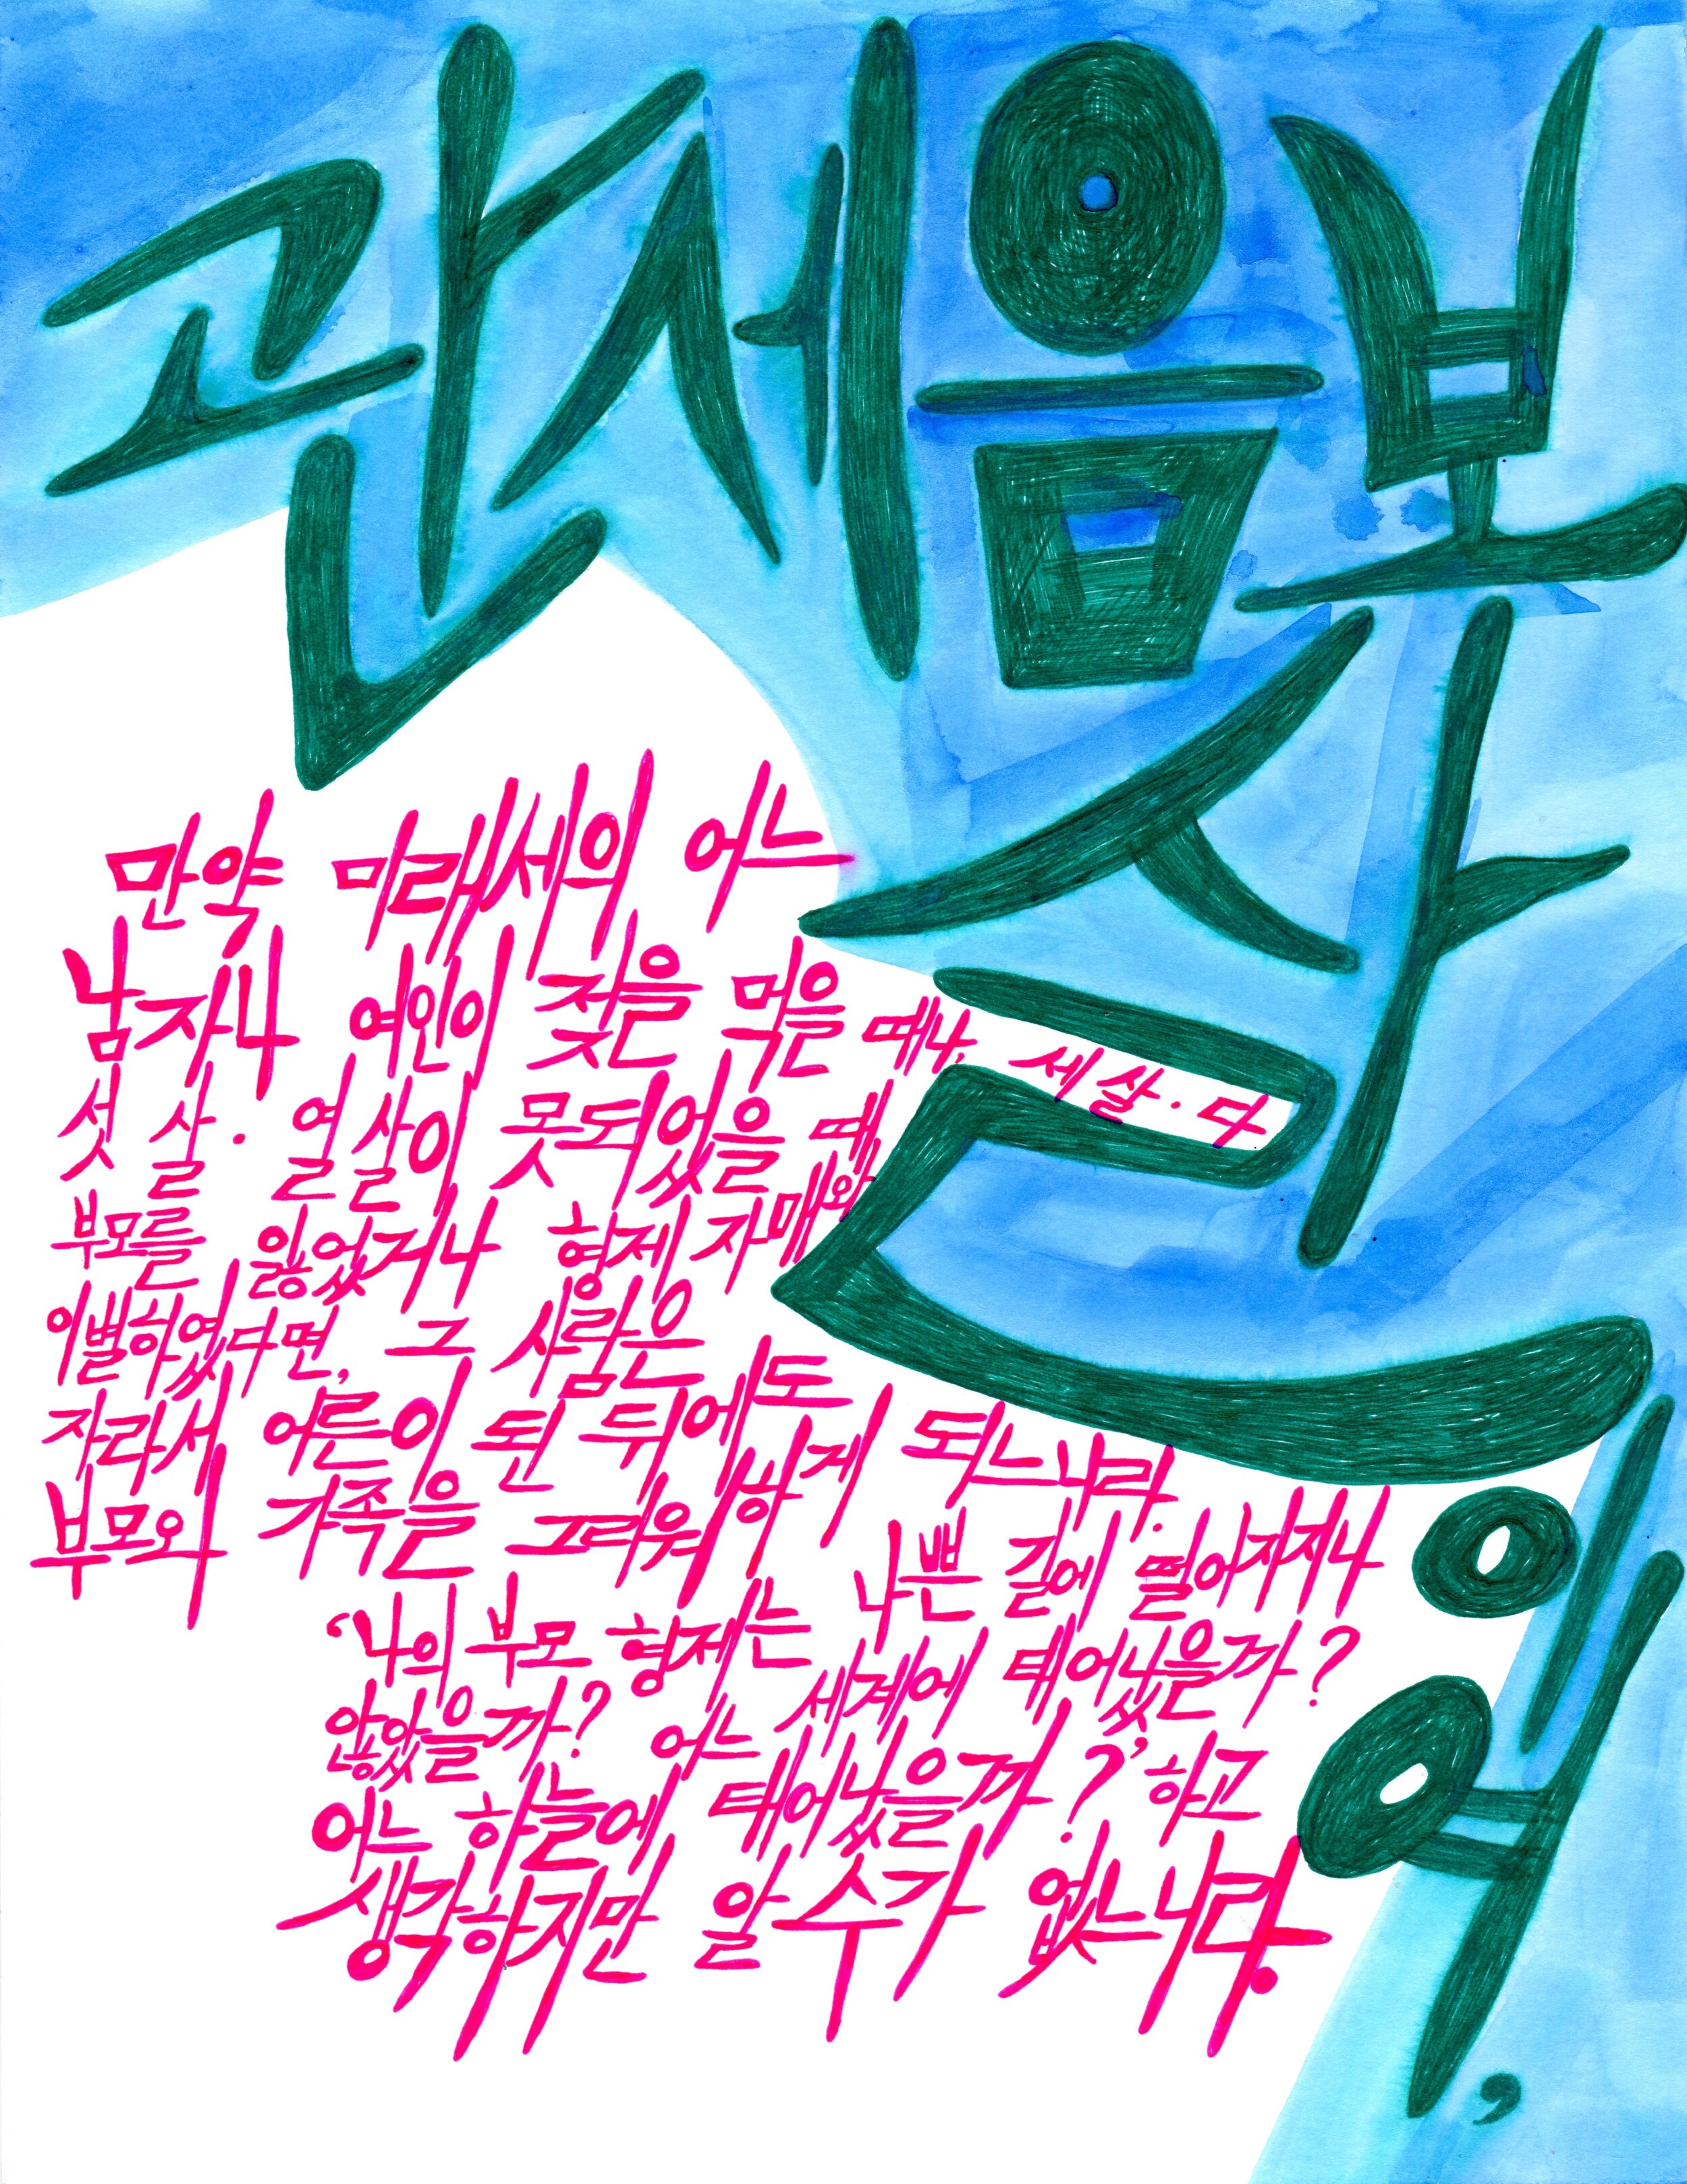 관세음보
살
이
여,
만약 미래세의 어느
남자나 여인이 젖을 먹을 때나, 세 살·다
섯 살·열 살이 못되었을 때,
부모를 잃었거나 형제 자매와
이별하였다면, 그 사람은
자라서 어른이 된 뒤에도
부모와 가족을 그리워하게 되느니라.
‘나의 부모 형제는 나쁜 길에 떨어지지나
않았을까? 어느 세계에 태어났을까?
어느 하늘에 태어났을까?’ 하고
생각하지만 알 수가 없느니라.